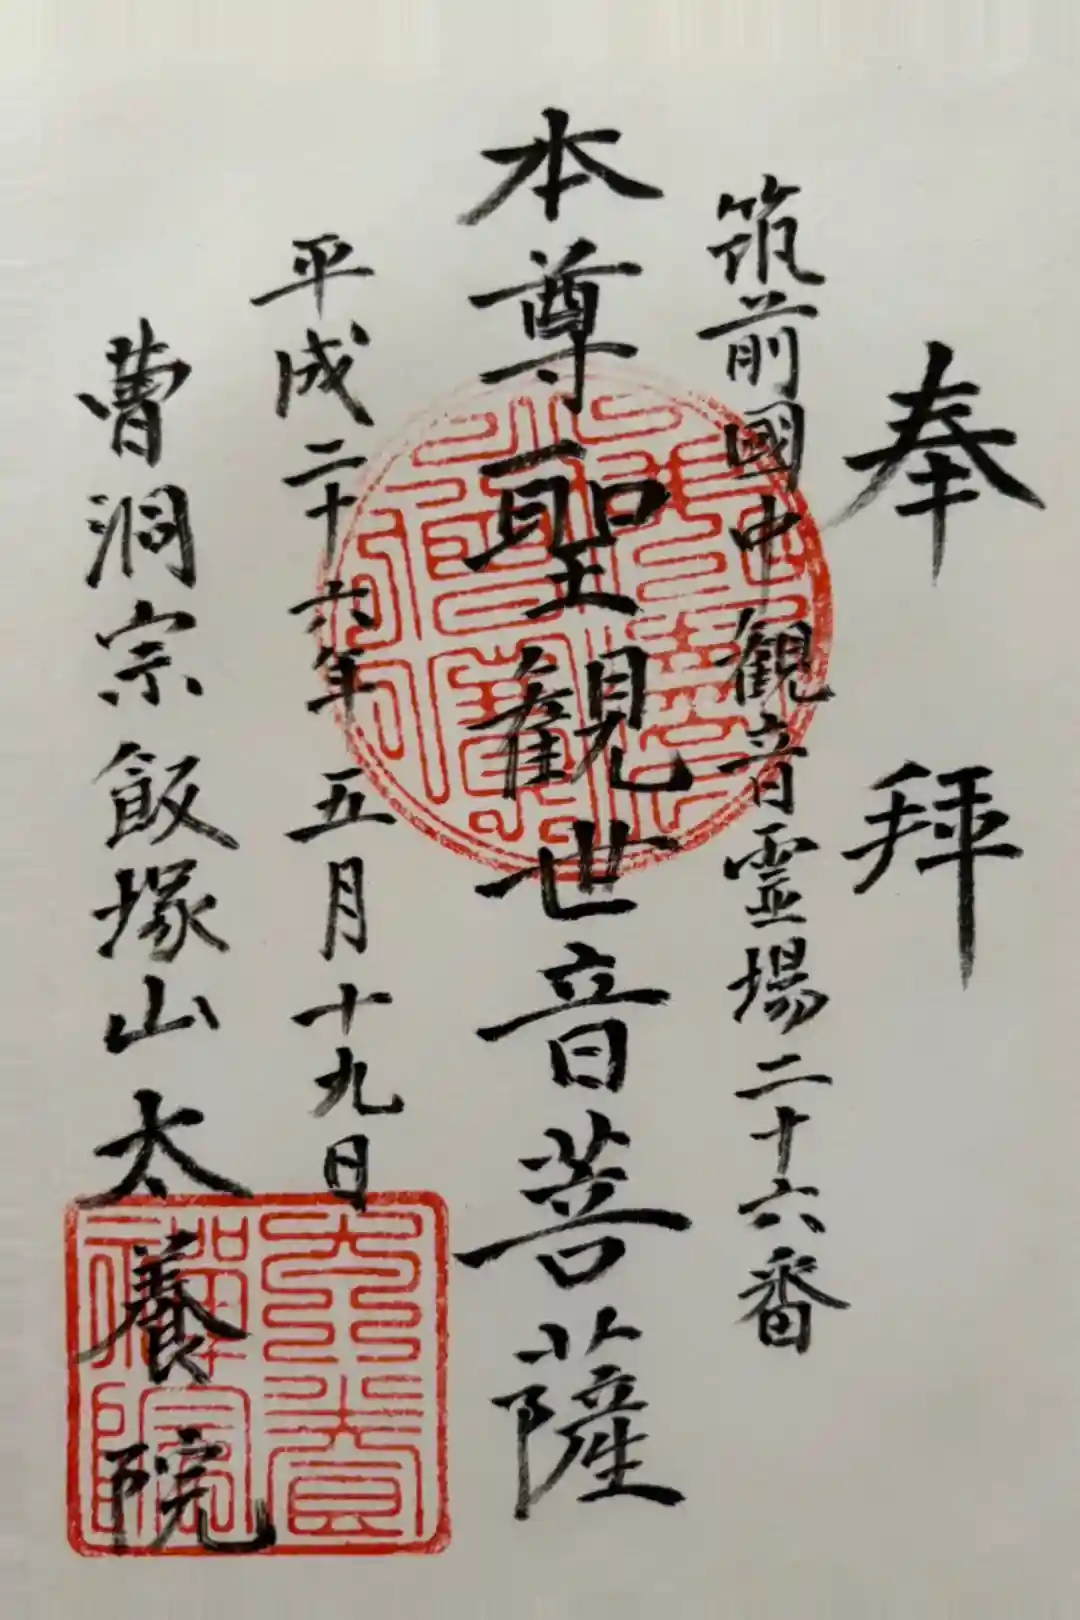 奉拜
筑前國中観音霊場二十六番
本尊聖觀世音菩薩
平成二十六年五月十九日
曹洞宗飯塚山太養院